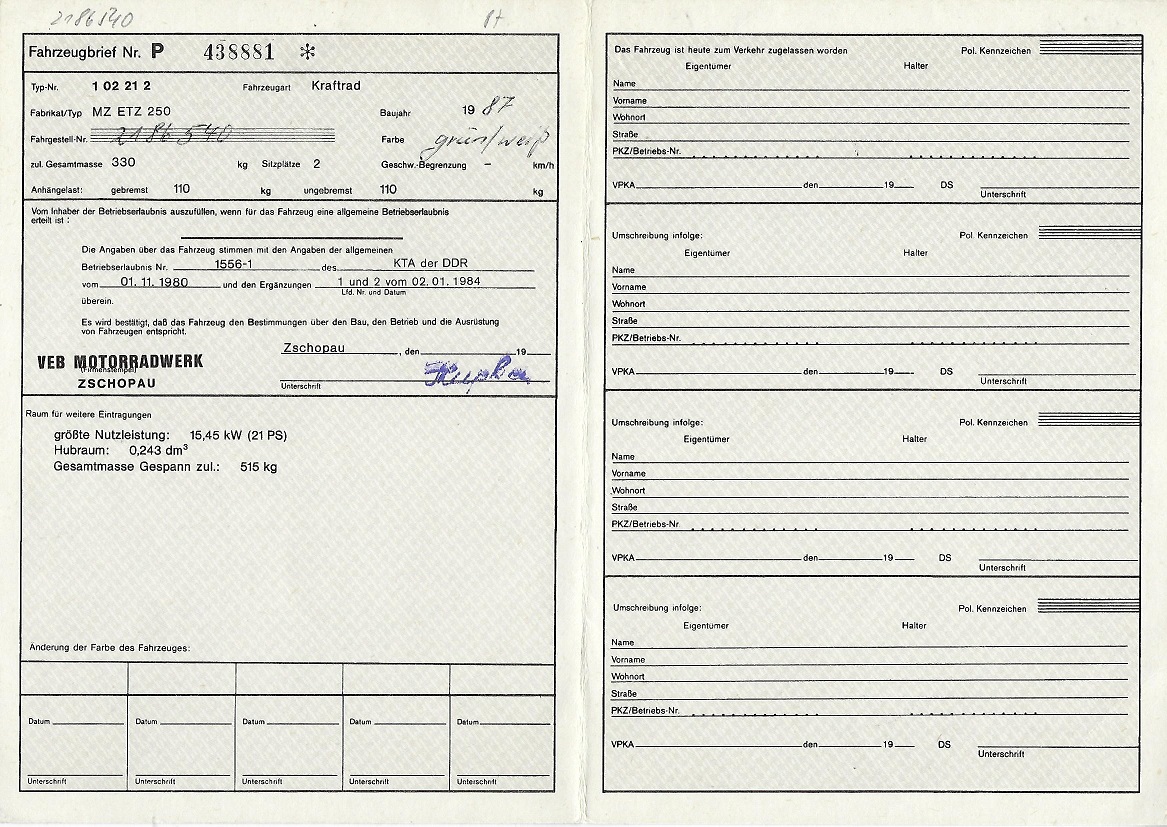 2186540 P+
Fahrzeugbrief Nr. P 438881 *
Typ-Nr. 1 02 21 2 Fahrzeugart Kraftrad
Fabrikat/Typ MZ ETZ 250 Baujahr 19 87
Fahrgestell-Nr. 2186540 Farbe grün/weiß
zul. Gesamtmasse 330 kg Sitzplätze 2 Geschw.-Begrenzung – km/h
Anhängelast: gebremst 110 kg ungebremst 110 kg
Vom Inhaber der Betriebserlaubnis auszufüllen, wenn für das Fahrzeug eine allgemeine Betriebserlaubnis
erteilt ist :
Die Angaben über das Fahrzeug stimmen mit den Angaben der allgemeinen
Betriebserlaubnis Nr. 1556-1 des KTA der DDR
vom 01. 11. 1980 und den Ergänzungen 1 und 2 vom 02. 01. 1984
Lfd. Nr. und Datum
überein.
Es wird bestätigt, daß das Fahrzeug den Bestimmungen über den Bau, den Betrieb und die Ausrüstung
von Fahrzeugen entspricht.
Zschopau , den 19
VEB MOTORRADWERK
(Firmenstempel)
ZSCHOPAU
Unterschrift
Raum für weitere Eintragungen
größte Nutzleistung: 15,45 kW (21 PS)
Hubraum: 0,243 dm³
Gesamtmasse Gespann zul.: 515 kg
Änderung der Farbe des Fahrzeuges:
Datum Datum Datum Datum Datum
Unterschrift Unterschrift Unterschrift Unterschrift Unterschrift
Das Fahrzeug ist heute zum Verkehr zugelassen worden Pol. Kennzeichen
Eigentümer Halter
Name
Vorname
Wohnort
Straße
PKZ/Betriebs-Nr.
VPKA den 19 DS
Unterschrift
Umschreibung infolge: Pol. Kennzeichen
Eigentümer Halter
Name
Vorname
Wohnort
Straße
PKZ/Betriebs-Nr.
VPKA den 19 DS
Unterschrift
Umschreibung infolge: Pol. Kennzeichen
Eigentümer Halter
Name
Vorname
Wohnort
Straße
PKZ/Betriebs-Nr.
VPKA den 19 DS
Unterschrift
Umschreibung infolge: Pol. Kennzeichen
Eigentümer Halter
Name
Vorname
Wohnort
Straße
PKZ/Betriebs-Nr.
VPKA den 19 DS
Unterschrift